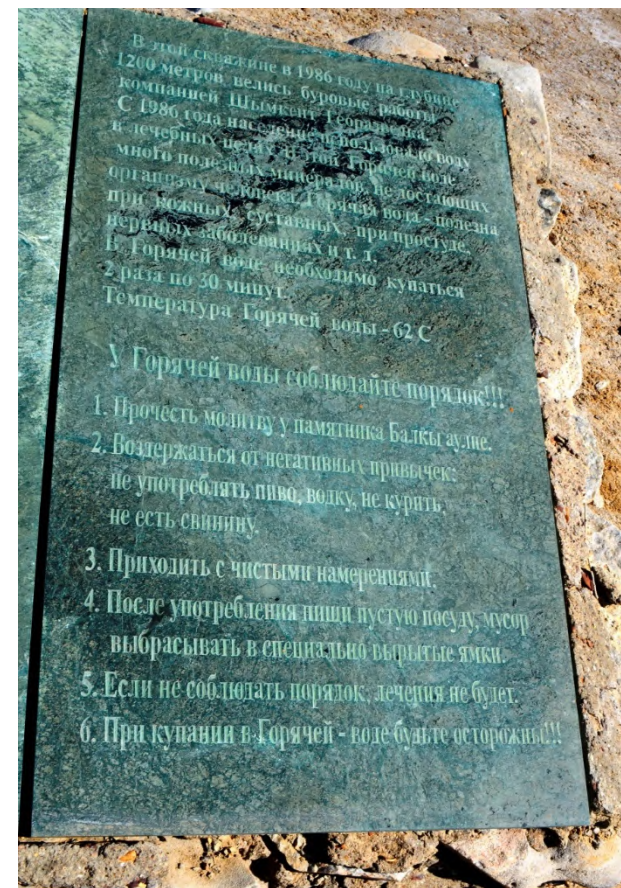 В этой скважине в 1986 году на глубине
1200 метров велись буровые работы
компанией Шымкент Георазведка.
С 1986 года население пользовало воду
в лечебных целях. В этой Горячей воде
много полезных минералов, не достающих
организму человека. Горячая вода - полезна
при кожных, суставных, при простуде,
нервных заболеваниях и т. д.
В Горячей воде необходимо купаться
2 раза по 30 минут.
Температура Горячей воды - 62 С
У Горячей воды соблюдайте порядок!!!
1. Прочесть молитву у памятника Балкы аулие.
2. Воздержаться от негативных привычек:
не употреблять пиво, водку, не курить,
не есть свинину.
3. Приходить с чистыми намерениями.
4. После употребления пищи пустую посуду, мусор
выбрасывать в специально вырытые ямки.
5. Если не соблюдать порядок, лечения не будет.
6. При купании в Горячей - воде будьте осторожны!!!